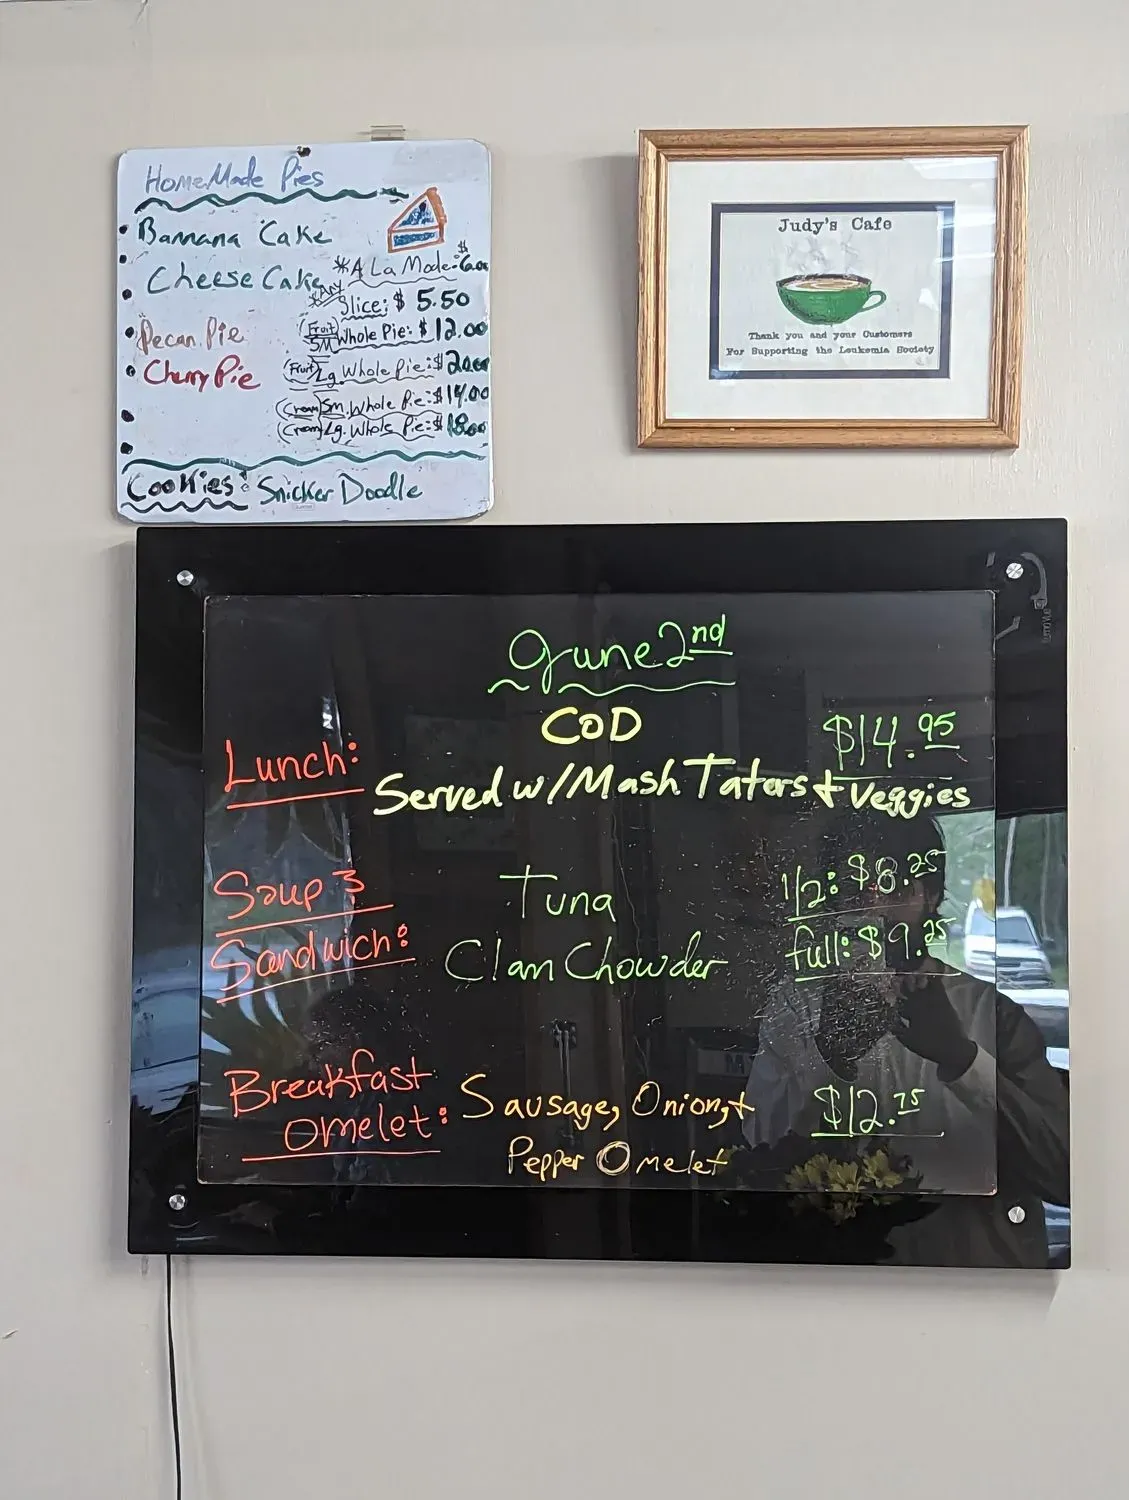 HomeMade Pies
Bannana Cake
Cheese Cake
Pecan Pie
Cherry Pie
*A La Mode: $6.00
*Any Slice: $5.50
(Fruit) SM Whole Pie: $12.00
(Fruit) Lg. Whole Pie: $20.00
(Cream) Sm. Whole Pie: $14.00
(Cream) Lg. Whole Pie: $18.00
Cookies: Snicker Doodle
Judy's Cafe
Thank you and your Customers
For Supporting the Leukemia Society
June 2nd
Lunch: COD $14.95
Served w/Mash Taters + Veggies
Soup 3 Tuna 1/2: $8.25
Sandwich: Clam Chowder full: $9.25
Breakfast Sausage, Onion, +
Omelet: Pepper Omelet $12.75